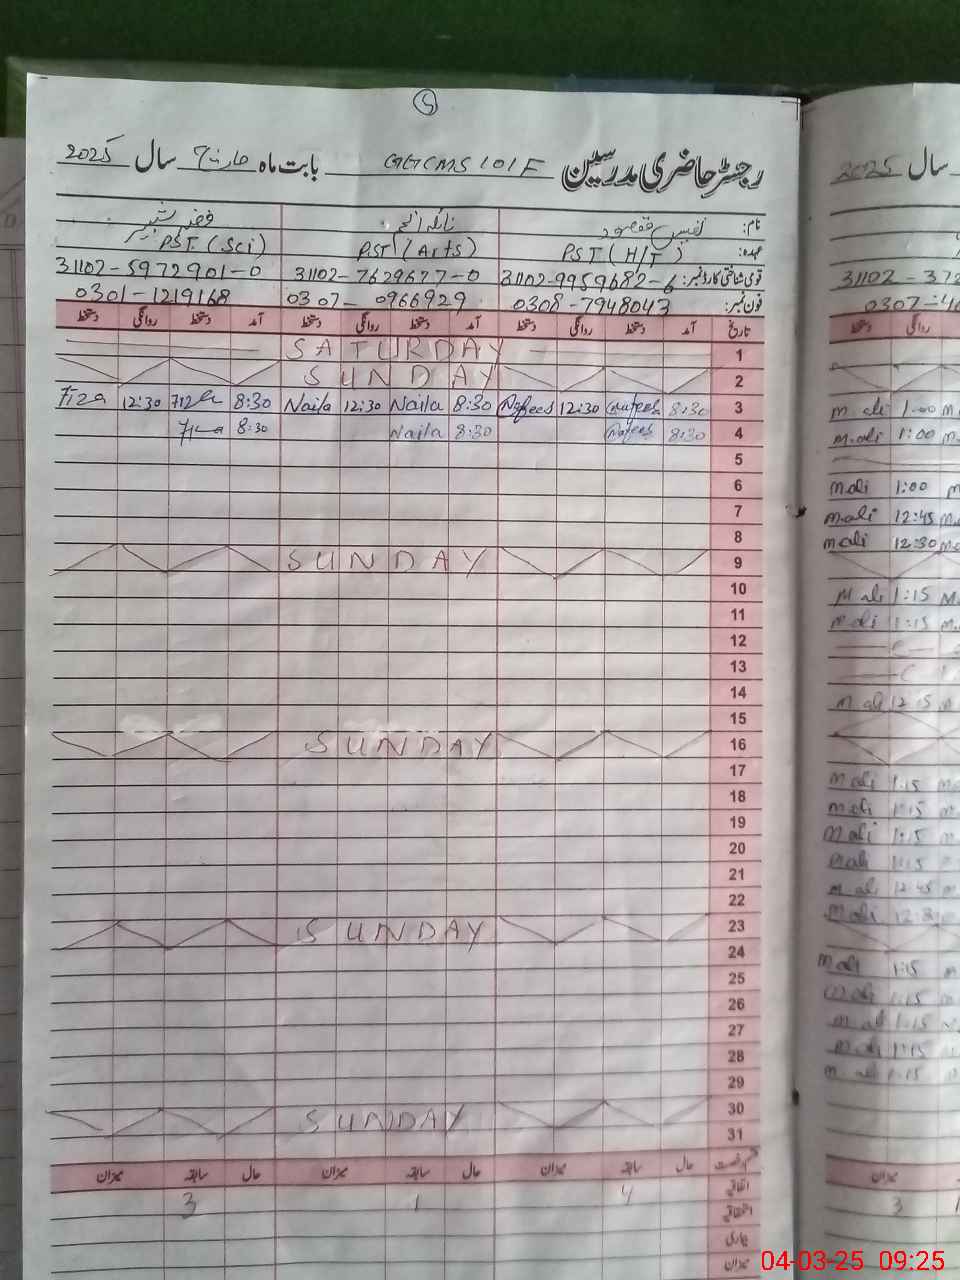 5
رجسٹر حاضری مدرسین GGCMS 101F بابت ماہ مارچ سال 2025
نام: نفیس مقصود نائلہ انجم فضہ بشیر
عہدہ: PST (H/T) PST (Arts) PST (Sci)
قومی شناختی کارڈ نمبر: 31102-9959682-6 31102-7629677-0 31102-5972901-0
فون نمبر: 0308-7948043 0307-0966929 0301-1219168
تاریخ آمد دستخط روانگی دستخط آمد دستخط روانگی دستخط آمد دستخط روانگی دستخط
1 SATURDAY
2 SUNDAY
3 8:30 Nafees 12:30 Nafees 8:30 Naila 12:30 Naila 8:30 Fiza 12:30 Fiza
4 8:30 Nafees 8:30 Naila 8:30 Fiza
5
6
7
8
9 SUNDAY
10
11
12
13
14
15
16 SUNDAY
17
18
19
20
21
22
23 SUNDAY
24
25
26
27
28
29
30 SUNDAY
31
قسم رخصت حال سابقہ میزان حال سابقہ میزان حال سابقہ میزان
اتفاقیہ 4 1 3
استحقاقیہ
بیماری
میزان
سال 2025
31102-372
0307-40
روانگی دستخط
m.ali 1:00 m
m.ali 1:00 m
m.ali 1:00 m
m.ali 12:45 m.
m.ali 12:30 m.
M ali 1:15 M.
m.ali 1:15 m.
m ali 12:15 m
m ali 1:15 m
m.ali 1:15 m
M ali 1:15 m
m ali 1:15
m.ali 12:45 m
m.ali 12:30
m ali 1:15 m
m.ali 1:15
m.ali 1:15
m.ali 1:15
m.ali 1:15
میزان
3
04-03-25 09:25